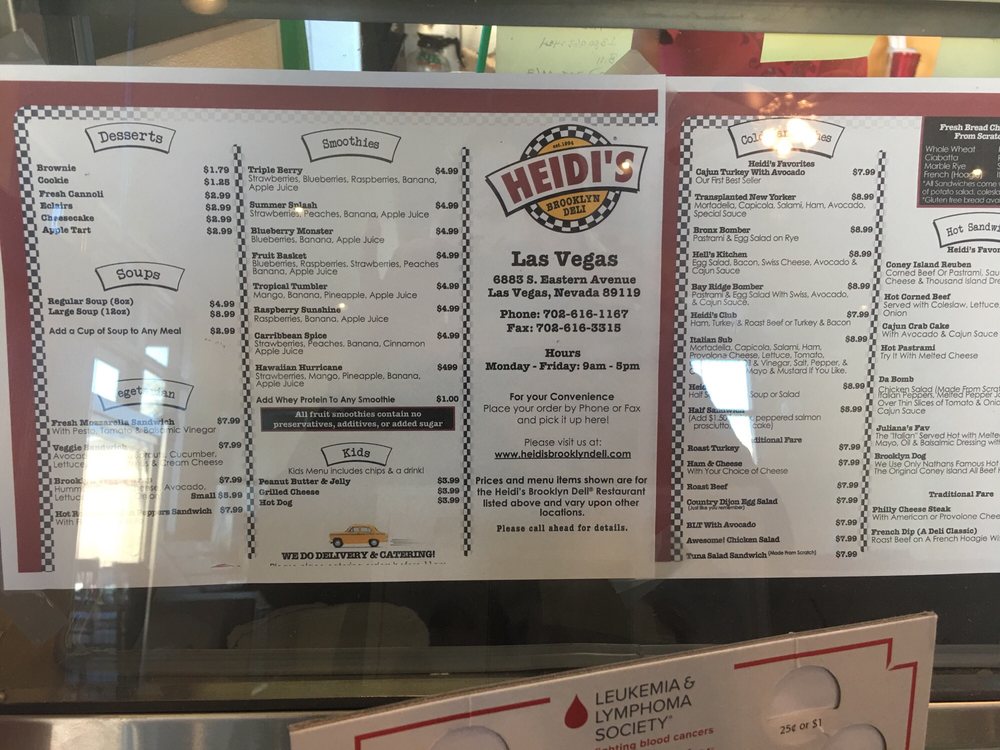 Desserts
Brownie $1.79
Cookie $1.25
Fresh Cannoli $2.99
Eclairs $2.99
Cheesecake $2.99
Apple Tart $2.99
Soups
Regular Soup (8oz) $4.99
Large Soup (12oz) $8.99
Add a Cup of Soup to Any Meal $2.99
Vegetarian
Fresh Mozzarella Sandwich $7.99
With Pesto, Tomato & Balsamic Vinegar
Veggie Sandwich $7.99
Cucumber,
Lettuce & Cream Cheese
$7.99
Avocado,
Lettuce Small $5.99
Peppers Sandwich $7.99
Smoothies
Triple Berry $4.99
Strawberries, Blueberries, Raspberries, Banana,
Apple Juice
Summer Splash $4.99
Strawberries, Peaches, Banana, Apple Juice
Blueberry Monster $4.99
Blueberries, Banana, Apple Juice
Fruit Basket $4.99
Blueberries, Raspberries, Strawberries, Peaches
Banana, Apple Juice
Tropical Tumbler $4.99
Mango, Banana, Pineapple, Apple Juice
Raspberry Sunshine $4.99
Raspberries, Banana, Apple Juice
Carribbean Spice $4.99
Strawberries, Peaches, Banana, Cinnamon
Apple Juice
Hawaiian Hurricane $499
Strawberries, Mango, Pineapple, Banana,
Apple Juice
Add Whey Protein To Any Smoothie $1.00
All fruit smoothies contain no
preservatives, additives, or added sugar
Kids
Kids Menu includes chips & a drink!
Peanut Butter & Jelly $3.99
Grilled Cheese $3.99
Hot Dog $3.99
WE DO DELIVERY & CATERING!
est. 1994
HEIDI'S
BROOKLYN
DELI
Las Vegas
6883 S. Eastern Avenue
Las Vegas, Nevada 89119
Phone: 702-616-1167
Fax: 702-616-3315
Hours
Monday - Friday: 9am - 5pm
For your Convenience
Place your order by Phone or Fax
and pick it up here!
Please visit us at:
www.heidisbrooklyndeli.com
Prices and menu items shown are for
the Heidi's Brooklyn Deli® Restaurant
listed above and vary upon other
locations.
Please call ahead for details.
Heidi's Favorites
Cajun Turkey With Avocado $7.99
Our First Best Seller
Transplanted New Yorker $8.99
Mortadella, Capicola, Salami, Ham, Avocado,
Special Sauce
Bronx Bomber $8.99
Pastrami & Egg Salad on Rye
Hell's Kitchen $8.99
Egg Salad, Bacon, Swiss Cheese, Avocado &
Cajun Sauce
Bay Ridge Bomber $8.99
Pastrami & Egg Salad With Swiss, Avocado,
& Cajun Sauce.
Heidi's Club $7.99
Ham, Turkey & Roast Beef or Turkey & Bacon
Italian Sub $8.99
Mortadella, Capicola, Salami, Ham,
Provolone Cheese, Lettuce, Tomato,
Oil & Vinegar, Salt, Pepper, &
Mayo & Mustard If You Like.
$8.99
Soup or Salad
Half Sandwich $5.99
peppered salmon
Traditional Fare
Roast Turkey $7.99
Ham & Cheese $7.99
With Your Choice of Cheese
Roast Beef $7.99
Country Dijon Egg Salad $7.99
(Just like you remember)
BLT With Avocado $7.99
Awesome! Chicken Salad $7.99
Tuna Salad Sandwich (Made From Scratch) $7.99
Fresh Bread
From
Whole Wheat
Ciabatta
Marble Rye
French (Hoagie)
*All Sandwiches come
of potato salad,
*Gluten free bread
Hot
Heidi's
Coney Island Reuben
Corned Beef Or Pastrami,
Cheese & Thousand Island
Hot Corned Beef
Served with Coleslaw, Lettuce,
Onion
Cajun Crab Cake
With Avocado & Cajun Sauce
Hot Pastrami
Try It With Melted Cheese
Da Bomb
Chicken Salad (Made From
Italian Peppers, Melted Pepper
Over Thin Slices of Tomato &
Cajun Sauce
Juliana's Fav
The "Italian" Served Hot with
Mayo, Oil & Balsalmic Dressing
Brooklyn Dog
We Use Only Nathans Famous Hot
The Original Coney Island All Beef
Traditional Fare
Philly Cheese Steak
With American or Provolone
French Dip (A Deli Classic)
Roast Beef on A French Hoagie
LEUKEMIA &
LYMPHOMA
SOCIETY®
fighting blood cancers
25¢ or $1